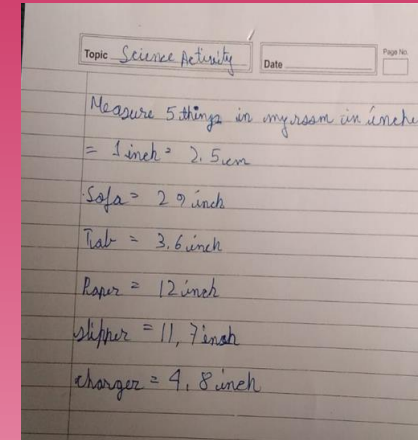 Topic Science Activity
Date
Page No.
Measure 5 things in my room in inche
= 1 inch = 2.5 cm
Sofa = 29 inch
Tab = 3.6 inch
Paper = 12 inch
slipper = 11, 7 inch
charger = 4.8 inch